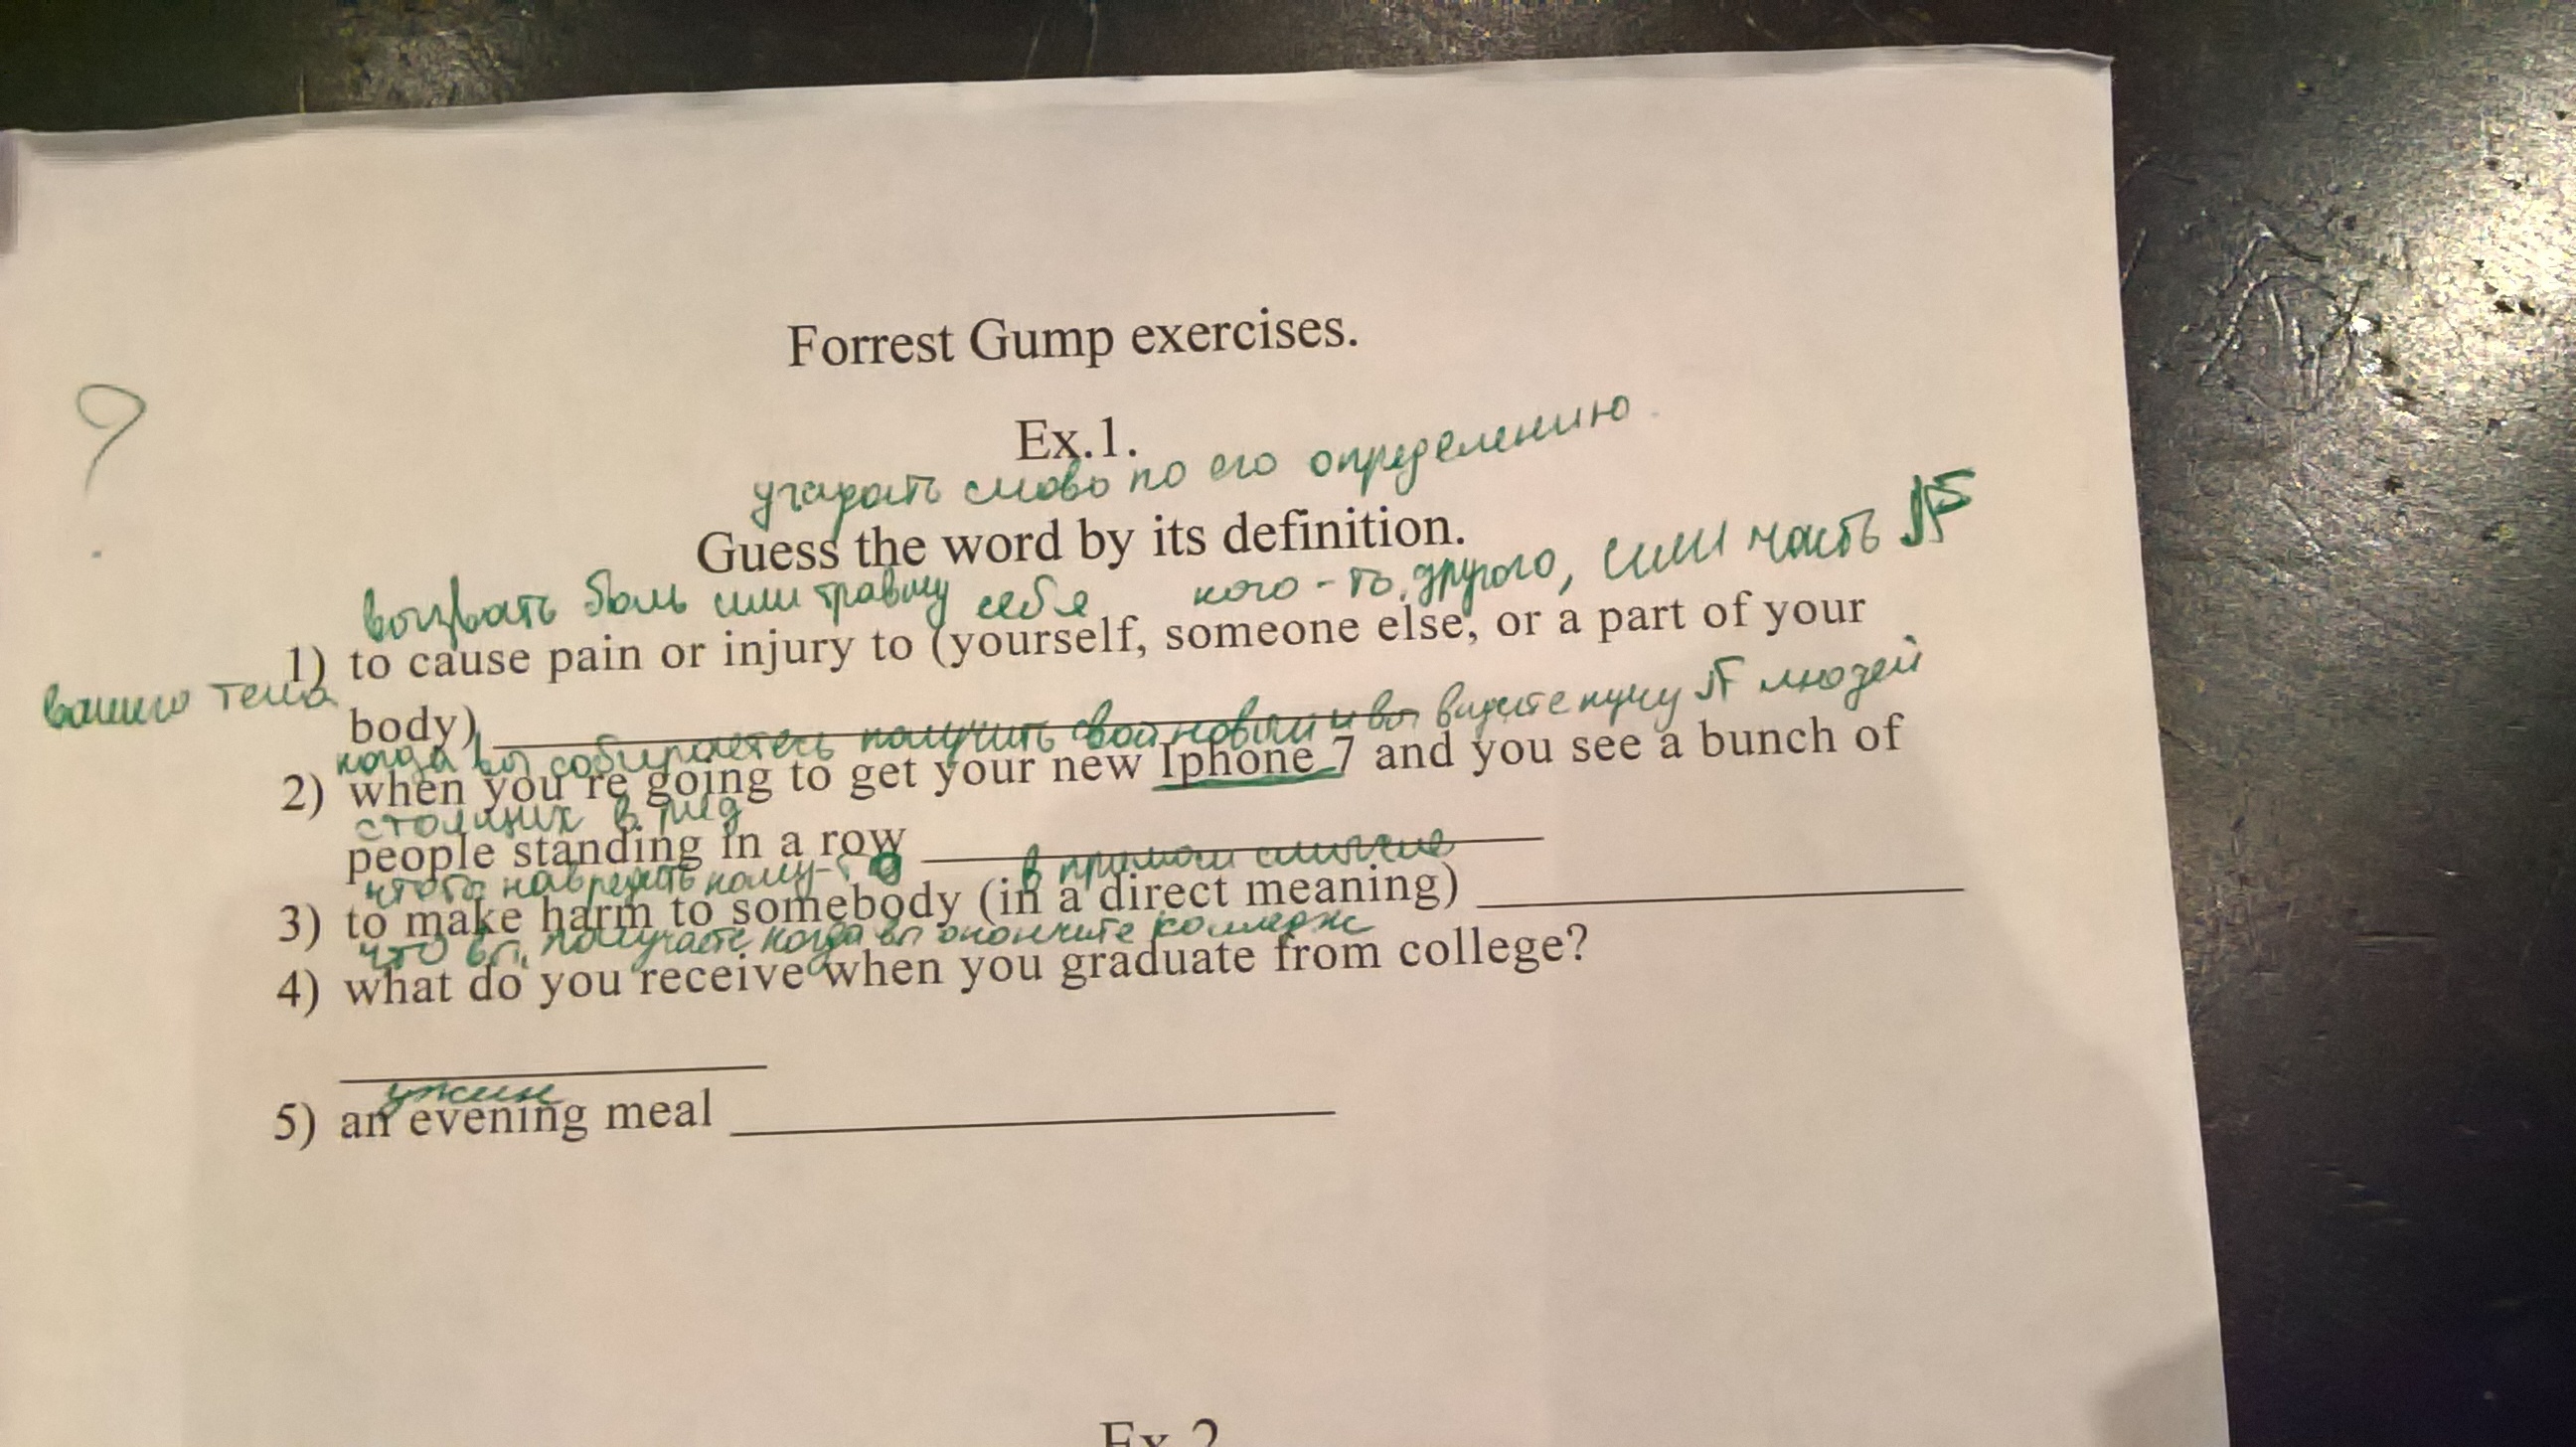 Forrest Gump exercises.
?
Ex.1.
угадать слово по его определению.
Guess the word by its definition.
вызвать боль или травму себя кого-то другого, или часть
1) to cause pain or injury to (yourself, someone else, or a part of your
вашего тела
body)
когда вы собираетесь получить свой новый и вы видите кучу людей
2) when you're going to get your new Iphone 7 and you see a bunch of
стоящих в ряд
people standing in a row
чтобы навредить кому-то в прямом смысле
3) to make harm to somebody (in a direct meaning)
что вы получаете когда вы окончите колледж
4) what do you receive when you graduate from college?
ужин
5) an evening meal
Ex.2